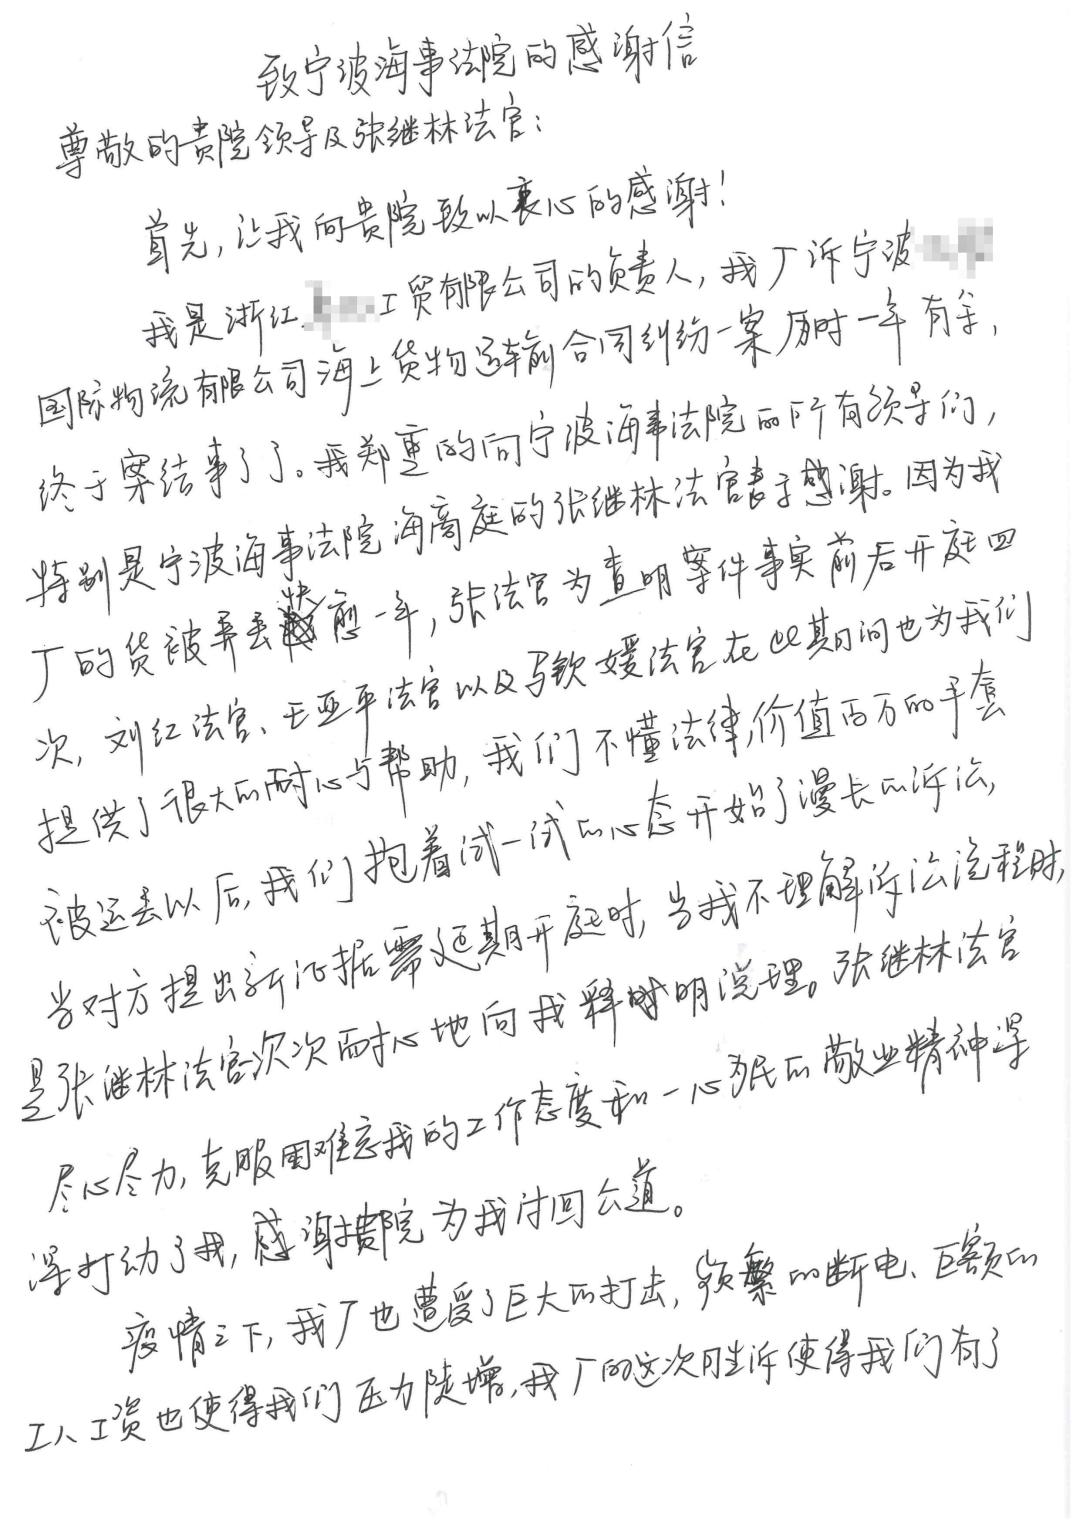 致宁波海事法院的感谢信
尊敬的贵院领导及张继林法官：
首先，让我向贵院致以衷心的感谢！
我是浙江工贸有限公司的负责人，我厂诉宁波
国际物流有限公司海上货物运输合同纠纷一案历时一年有余，
终于案结事了了。我郑重的向宁波海事法院的所有领导们，
特别是宁波海事法院海商庭的张继林法官表于感谢。因为我
厂的货被弄丢快愈一年，张法官为查明案件事实前后开庭四
次，刘红法官、王亚平法官以及马钦媛法官在此期间也为我们
提供了很大的耐心与帮助，我们不懂法律，价值百万的手套
被运丢以后，我们抱着试一试的心态开始了漫长的诉讼，
当对方提出新证据需延期开庭时，当我不理解诉讼流程时，
是张继林法官次次耐心地向我释明说理。张继林法官
尽心尽力，克服困难忘我的工作态度和一心为民的敬业精神深
深打动了我，感谢贵院为我讨回公道。
疫情之下，我厂也遭受了巨大的打击，频繁的断电、巨额的
工人工资也使得我们压力陡增，我厂的这次胜诉使得我们有了